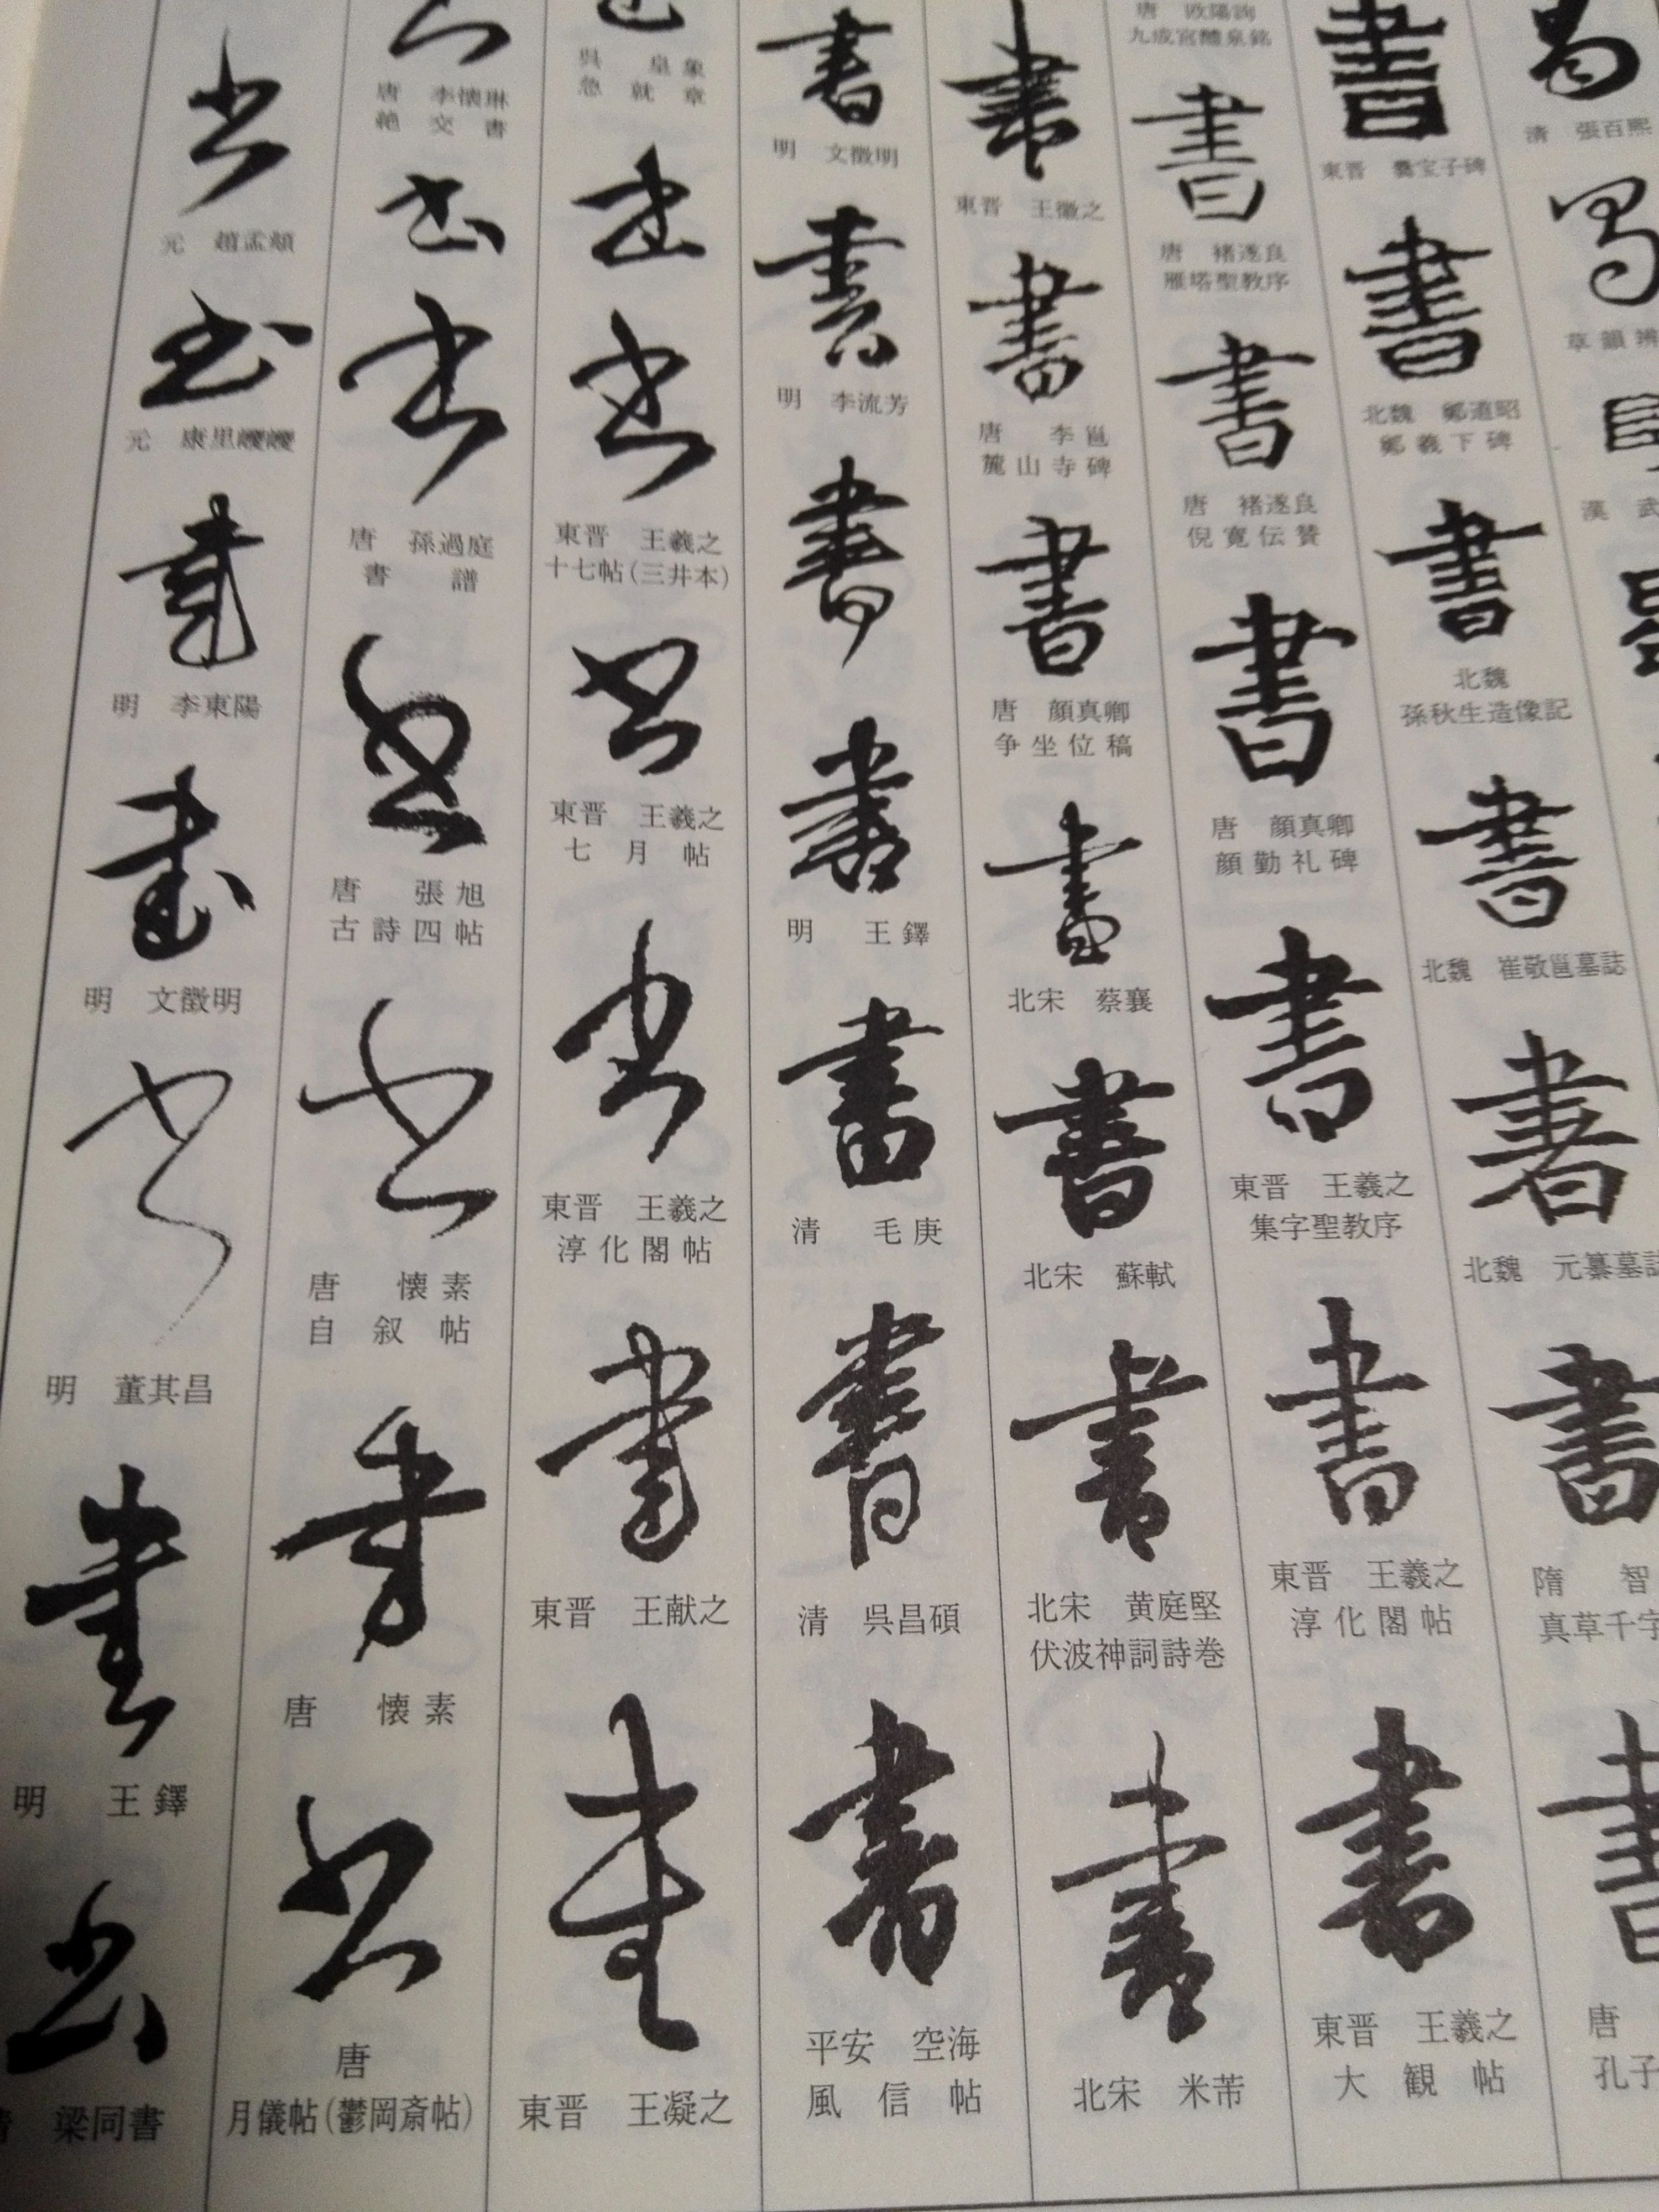 清 張百熙
書
草韻辨
漢 武
書
東晋 爨宝子碑
書
北魏 鄭道昭
鄭羲下碑
書
北魏
孫秋生造像記
書
北魏 崔敬邕墓誌
書
北魏 元纂墓誌
書
隋 智
真草千字
書
唐
孔子
唐 欧陽詢
九成宮醴泉銘
書
唐 褚遂良
雁塔聖教序
書
唐 褚遂良
倪寛伝賛
書
唐 顔真卿
顔勤礼碑
書
東晋 王羲之
集字聖教序
書
東晋 王羲之
淳化閣帖
書
東晋 王羲之
大観帖
書
東晋 王徽之
書
唐 李邕
麓山寺碑
書
唐 顔真卿
争坐位稿
書
北宋 蔡襄
書
北宋 蘇軾
書
北宋 黄庭堅
伏波神詞詩巻
書
北宋 米芾
書
明 文徴明
書
明 李流芳
書
書
明 王鐸
書
清 毛庚
書
清 呉昌碩
書
平安 空海
風信帖
書
呉 皇象
急就章
書
書
東晋 王羲之
十七帖(三井本)
書
東晋 王羲之
七月帖
書
東晋 王羲之
淳化閣帖
書
東晋 王献之
書
東晋 王凝之
書
唐 李懐琳
絶交書
書
書
唐 孫過庭
書譜
書
唐 張旭
古詩四帖
書
唐 懐素
自叙帖
書
唐 懐素
書
唐
月儀帖(鬱岡斎帖)
書
元 趙孟頫
書
元 康里巎巎
書
明 李東陽
書
明 文徴明
書
明 董其昌
書
明 王鐸
書
清 梁同書